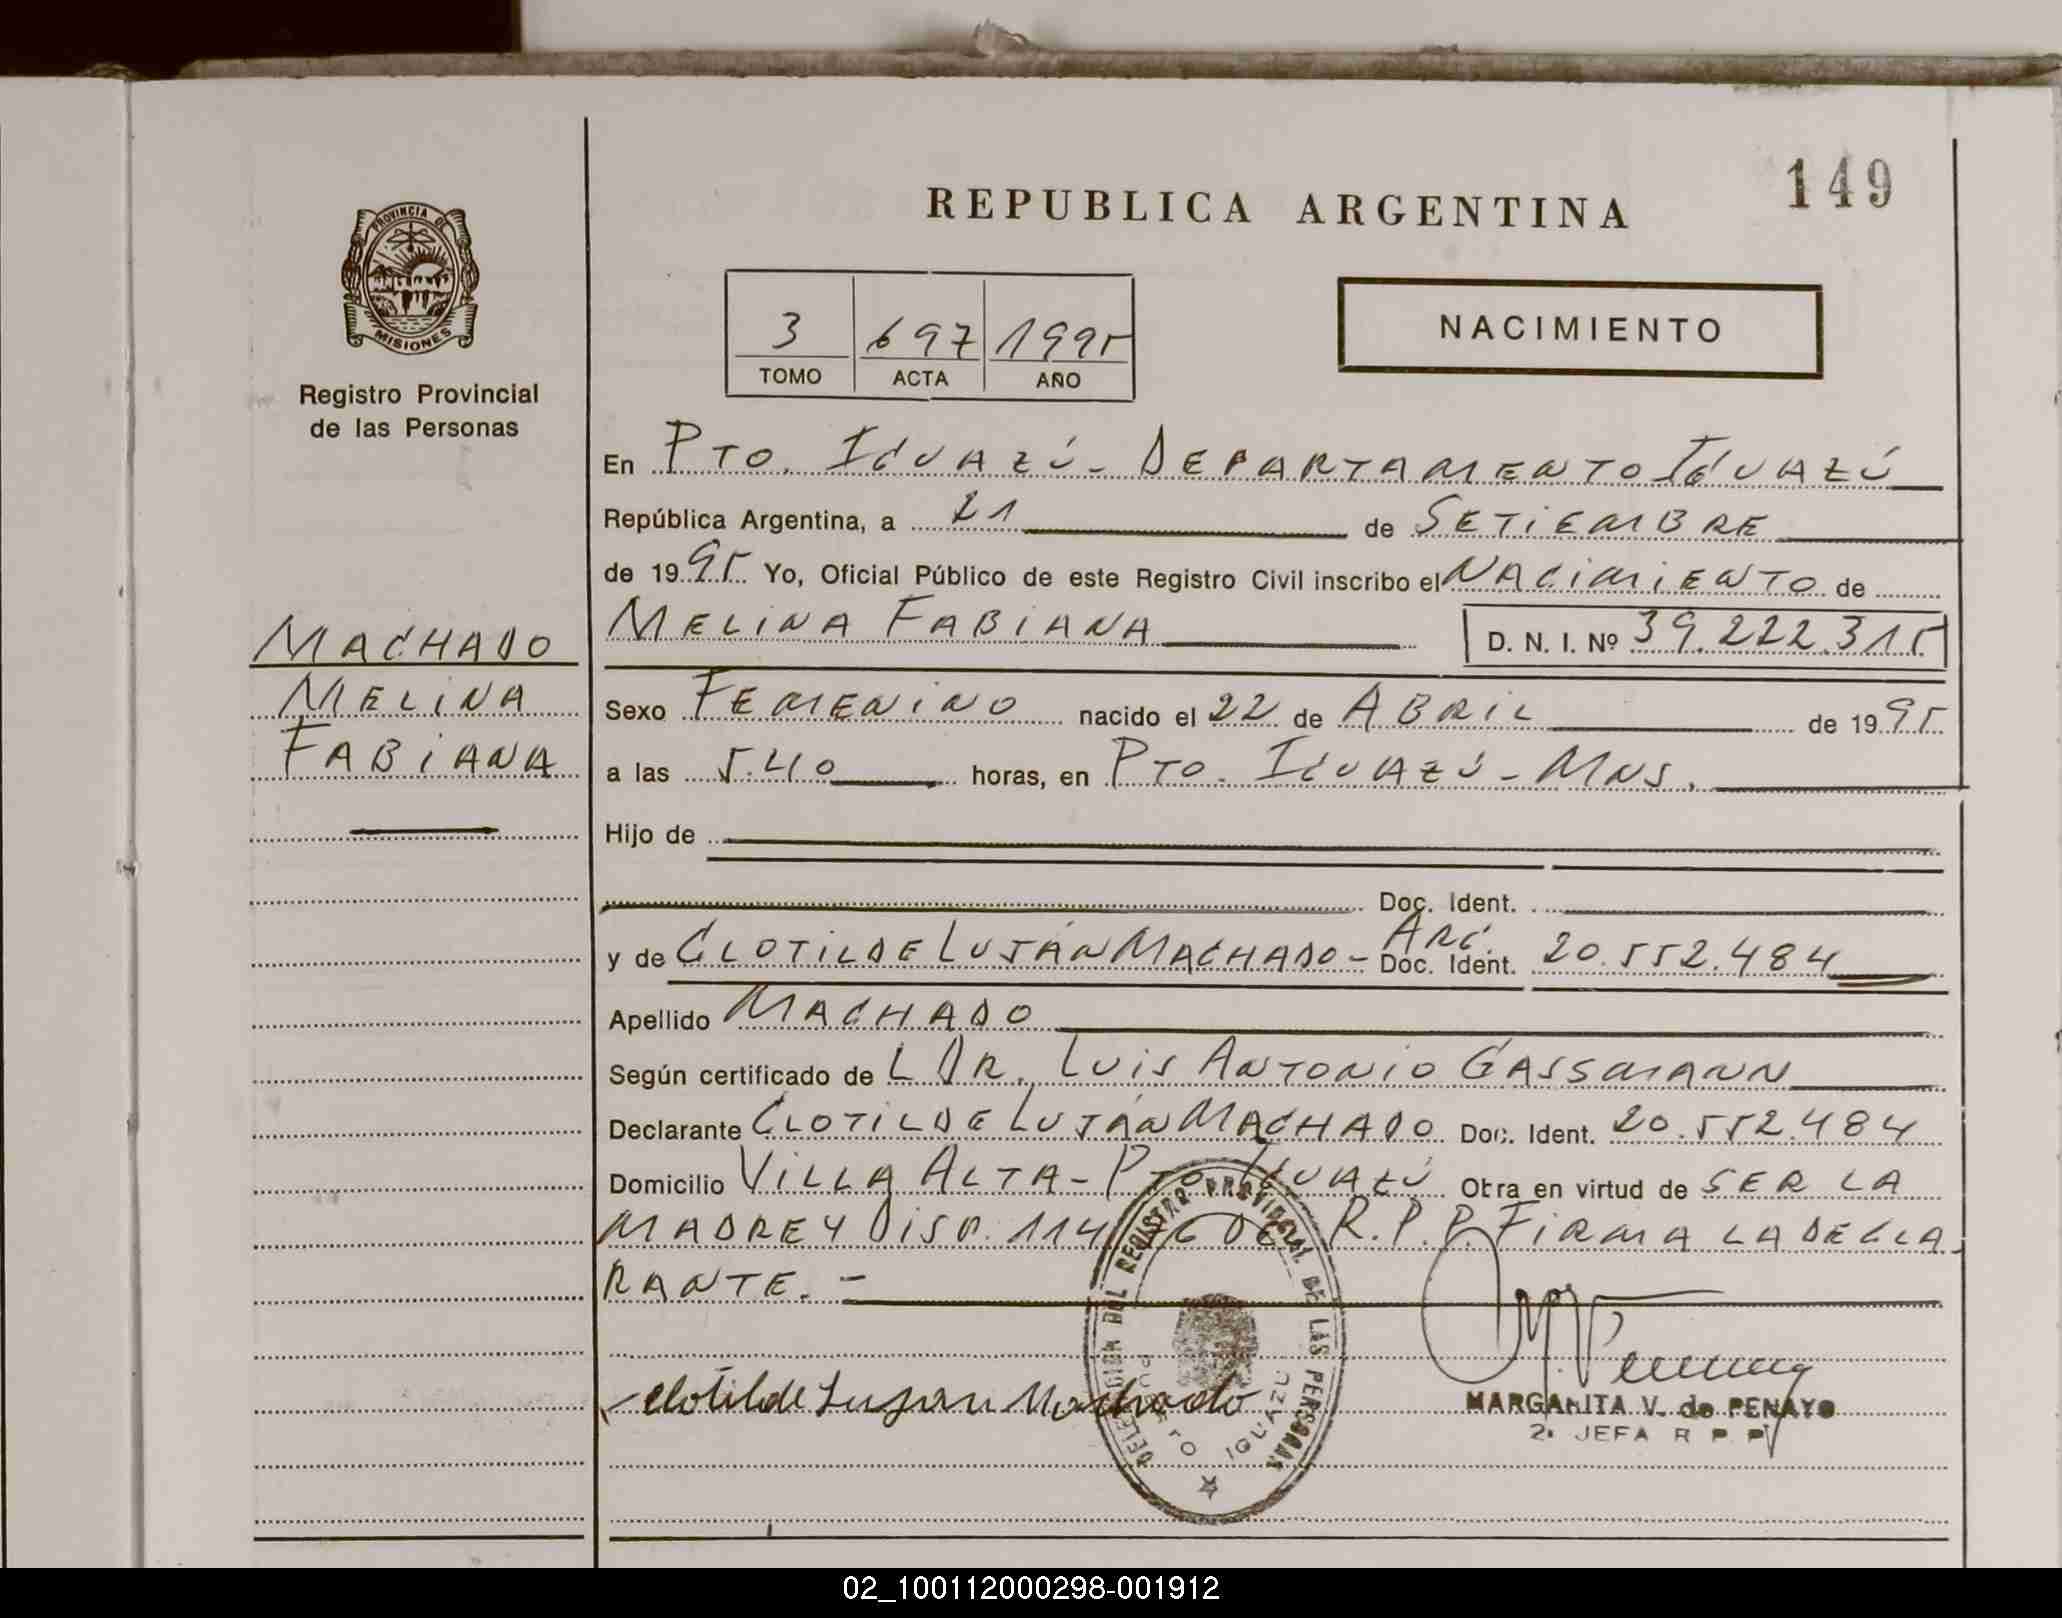 149
REPUBLICA ARGENTINA
PROVINCIA DE MISIONES
Registro Provincial
de las Personas
3 697 1995
TOMO ACTA AÑO
NACIMIENTO
En PTO. IGUAZÚ - DEPARTAMENTO IGUAZÚ
República Argentina, a 21 de SETIEMBRE
de 1995 Yo, Oficial Público de este Registro Civil inscribo el NACIMIENTO de
MELINA FABIANA D. N. I. Nº 39.222.315
MACHADO
MELINA
FABIANA
Sexo FEMENINO nacido el 22 de ABRIL de 1995
a las 5.40 horas, en PTO. IGUAZÚ - MNS.
Hijo de
Doc. Ident.
y de CLOTILDE LUJÁN MACHADO - ARG. Doc. Ident. 20.552.484
Apellido MACHADO
Según certificado de L DR. LUIS ANTONIO GASSMANN
Declarante CLOTILDE LUJÁN MACHADO Doc. Ident. 20.552.484
Domicilio VILLA ALTA - PTO IGUAZÚ Obra en virtud de SER LA
MADRE Y DISP. 114 DE R.P.P. FIRMA LA DECLA
RANTE. -
Clotilde Lujan Machado
DELEGACION DEL REGISTRO PROVINCIAL DE LAS PERSONAS
PUERTO IGUAZU
MARGARITA V. de PENAYO
2ª JEFA R P P
02_100112000298-001912